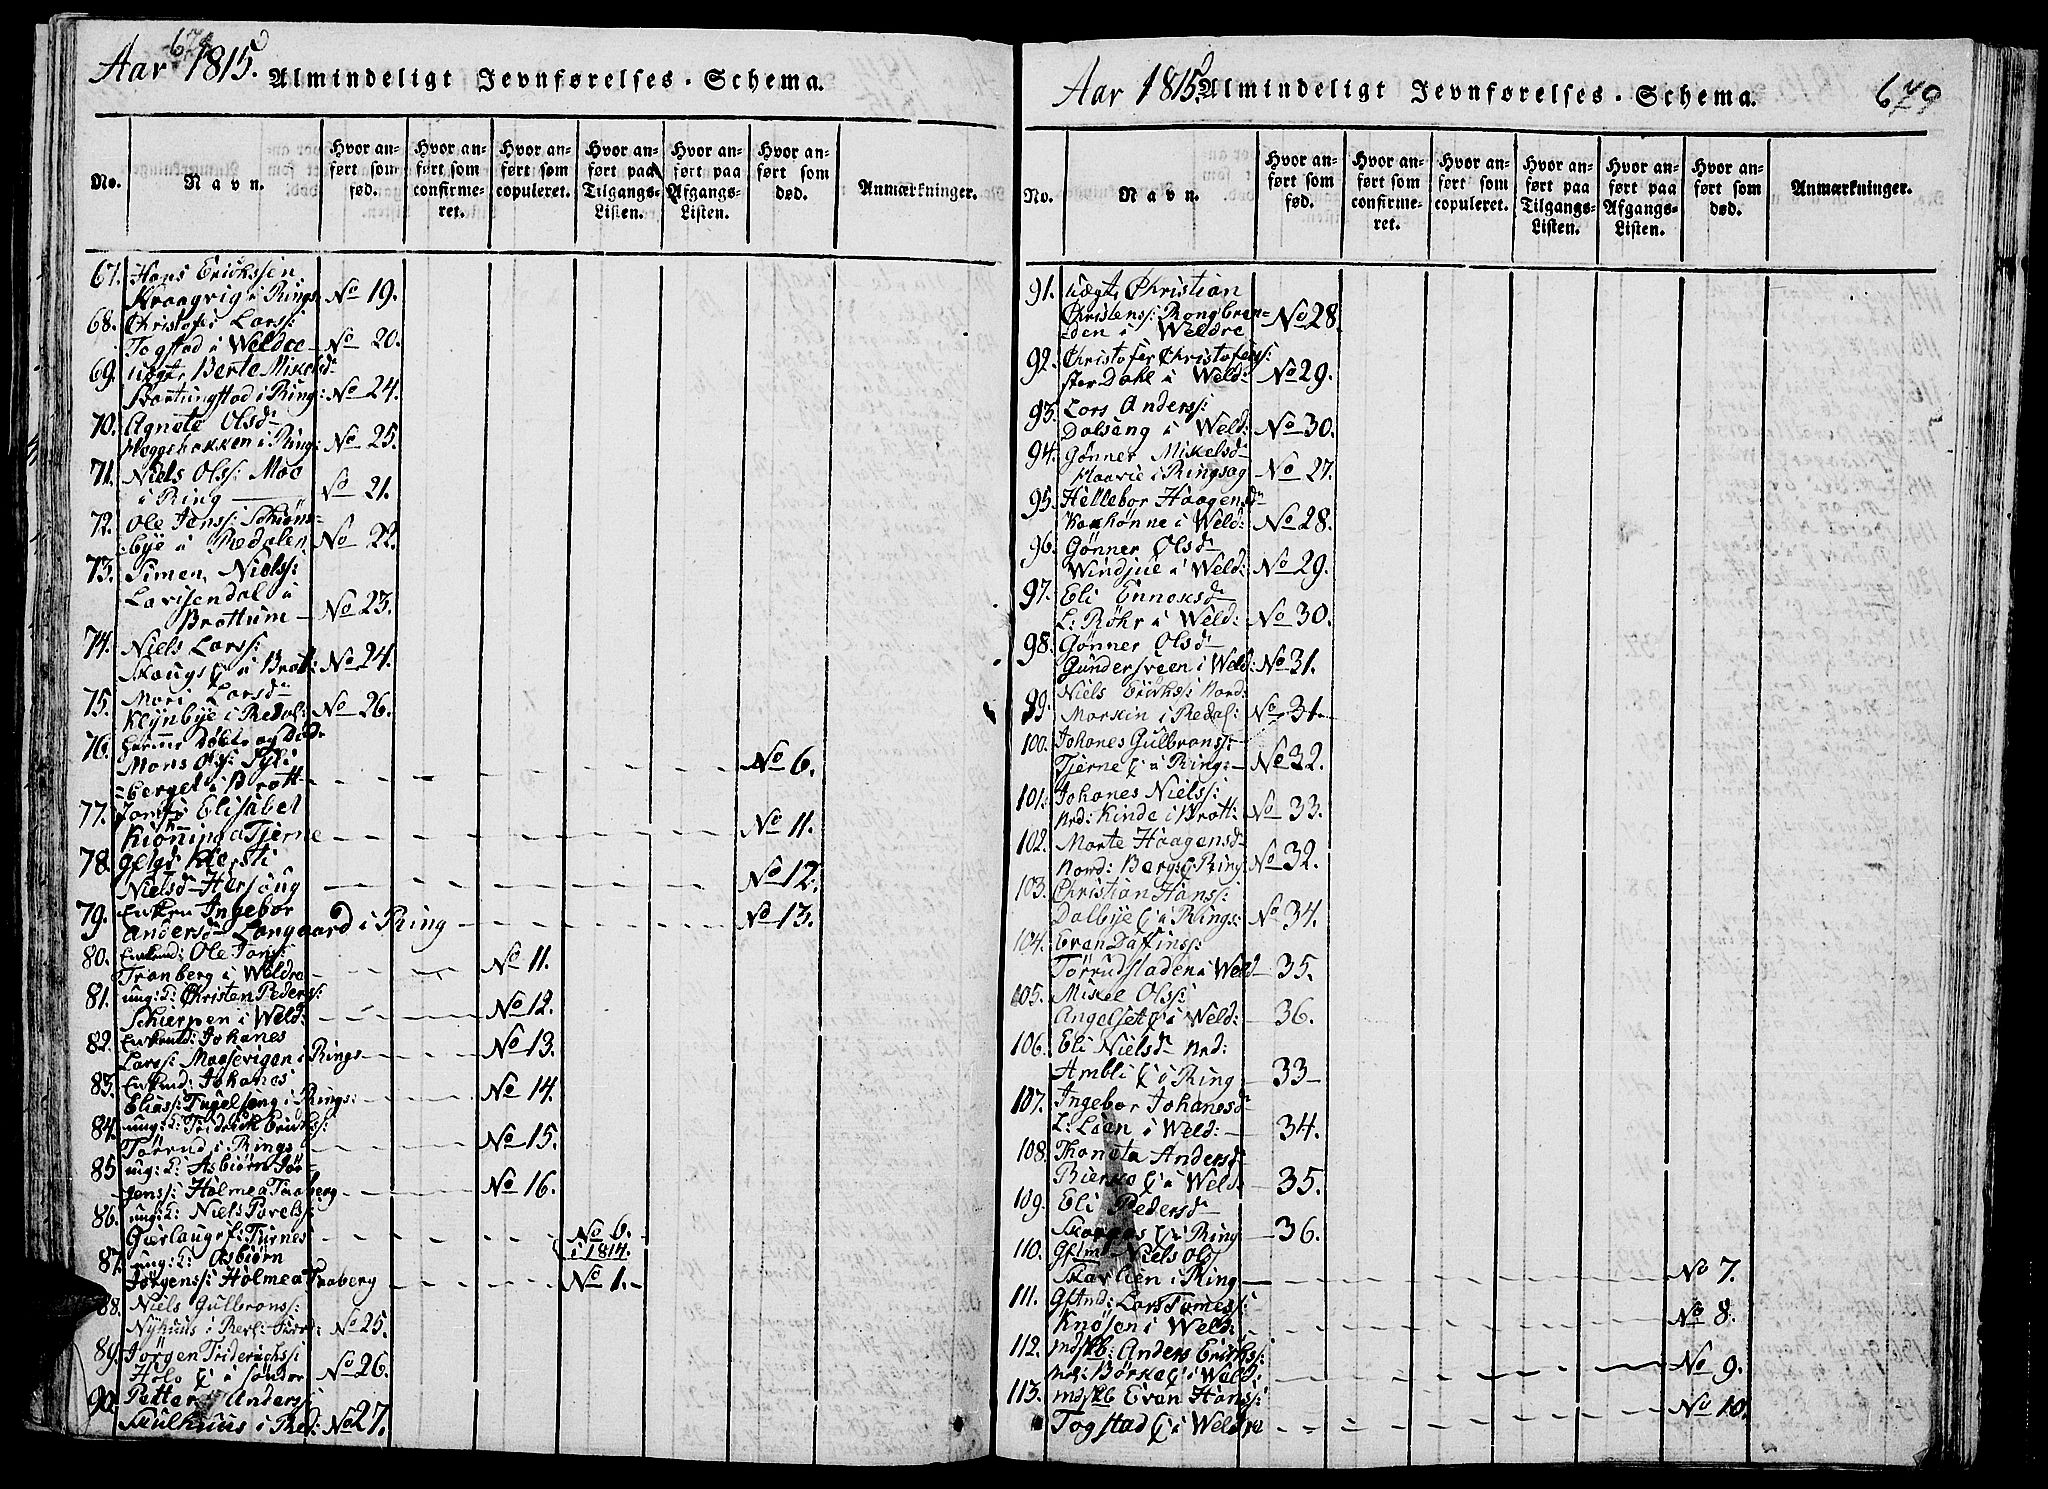 678
Aar 1815.
Almindeligt Jevnførelses-Schema.
No.
Navn.
Hvor anført som fød.
Hvor anført som confirmeret.
Hvor anført som copuleret.
Hvor anført paa Tilgangs-Listen.
Hvor anført paa Afgangs-Listen.
Hvor anført som død.
Anmærkninger.
67. Hans Erichssen
Kraagvig i Rings No 19.
68. Christofer Larss:
Togstad i Weldre No 20.
69. uægt. Berte Mikelsd
i Ring: No 24.
70. Agnete Olsd
Hæggebakken i Ring: No 25.
71. Niels Olss: Moe
i Ring No 21.
72. Ole Jenss: Schiøns=
bye i Redalen No 22.
73. Simen Nielss:
Larisendal i
Brøttum No 23.
74. Niels Larss:
i Brøt: No 24.
75. Mari Larsd
Klynbye i Redal: No 26.
76. døbt og Død
Mons Ols:
berget i Brøtt No 6.
77. Elisabet
Tjerne No 11.
78. Kiersti
Nielsd Hersoug No 12.
79. Enken Ingebor
Andersd Langaard i Ring No 13.
80. Enkmd: Ole Jons:
Tranberg i Weldre No 11.
81. ung: k: Christen Peders:
Schierpen i Weld: No 12.
82. Enkmd: Johanes
Larss: Maasevigen i Rings No 13.
83. Enkmd: Johanes
Eliass: i Rings: No 14.
84. ung: k: Fridrich Erichs:
Tørrud i Rings No 15.
85. ung: k: Asbiørn Jør=
gens: Holme a Faaberg No 16.
86. ung: k: Niels Povels:
Gierlaug f: Furnes No 6.
i 1814.
87. ung: k: Asbiørn
Jørgenss: Holme a Faaberg No 1.
88. Niels Gulbrans:
Nyhuus i No 25.
89. Jørgen Friderichs:
Holo i sønder No 26.
90. Petter Anders:
i Red: No 27.
Aar 1815.
Almindeligt Jevnførelses-Schema.
679
No.
Navn.
Hvor anført som fød.
Hvor anført som confirmeret.
Hvor anført som copuleret.
Hvor anført paa Tilgangs-Listen.
Hvor anført paa Afgangs-Listen.
Hvor anført som død.
Anmærkninger.
91. uægt, Christian
Christens: Rongbran=
den i Weldre No 28
92. Christofer Christofers:
stor Dahl i Weld: No 29.
93. Lars Anders:
Dalseng i Weld: No 30.
94. Gønner Mikelsd
i Ringsag No 27.
95. Hellebor Haagensd
i Weld: No 28.
96. Gønner Olsd
Windjue i Weld: No 29.
97. Eli Ennoksd
L: Røhr i Weld: No 30.
98. Gønner Olsd
Gundersveen i Weld: No 31.
99. Niels Erichs: Nord:
Morskin i Redal: No 31.
100. Johanes Gulbrans:
Tjerne i Ring: No 32.
101. Johanes Niels:
Nrd: Kinde i Brøtt: No 33.
102. Marte Haagensd
Nord: Berg i Ring No 32.
103. Christian Hans:
Dalbye i Rings: No 34.
104. Even Daffins:
i Weld 35.
105. Mikel Ols:
Angelset i Weld: 36.
106. Eli Nielsd Nrd:
Ambli i Ring 33
107. Ingebor Johanesd
L: Laan i Weld: 34.
108. Thoneta Andersd
i Weld 35.
109. Eli Pedersd
i Ring 36.
110. Niels Ols
Skarlien i Ring No 7.
111. Lars Tomes:
Knøsen i Weld: No 8.
112. mdskb: Anders Erichs:
Børke i Weld: No 9.
113. mdskb Even Hans:
Togstad i Weldre No 10.